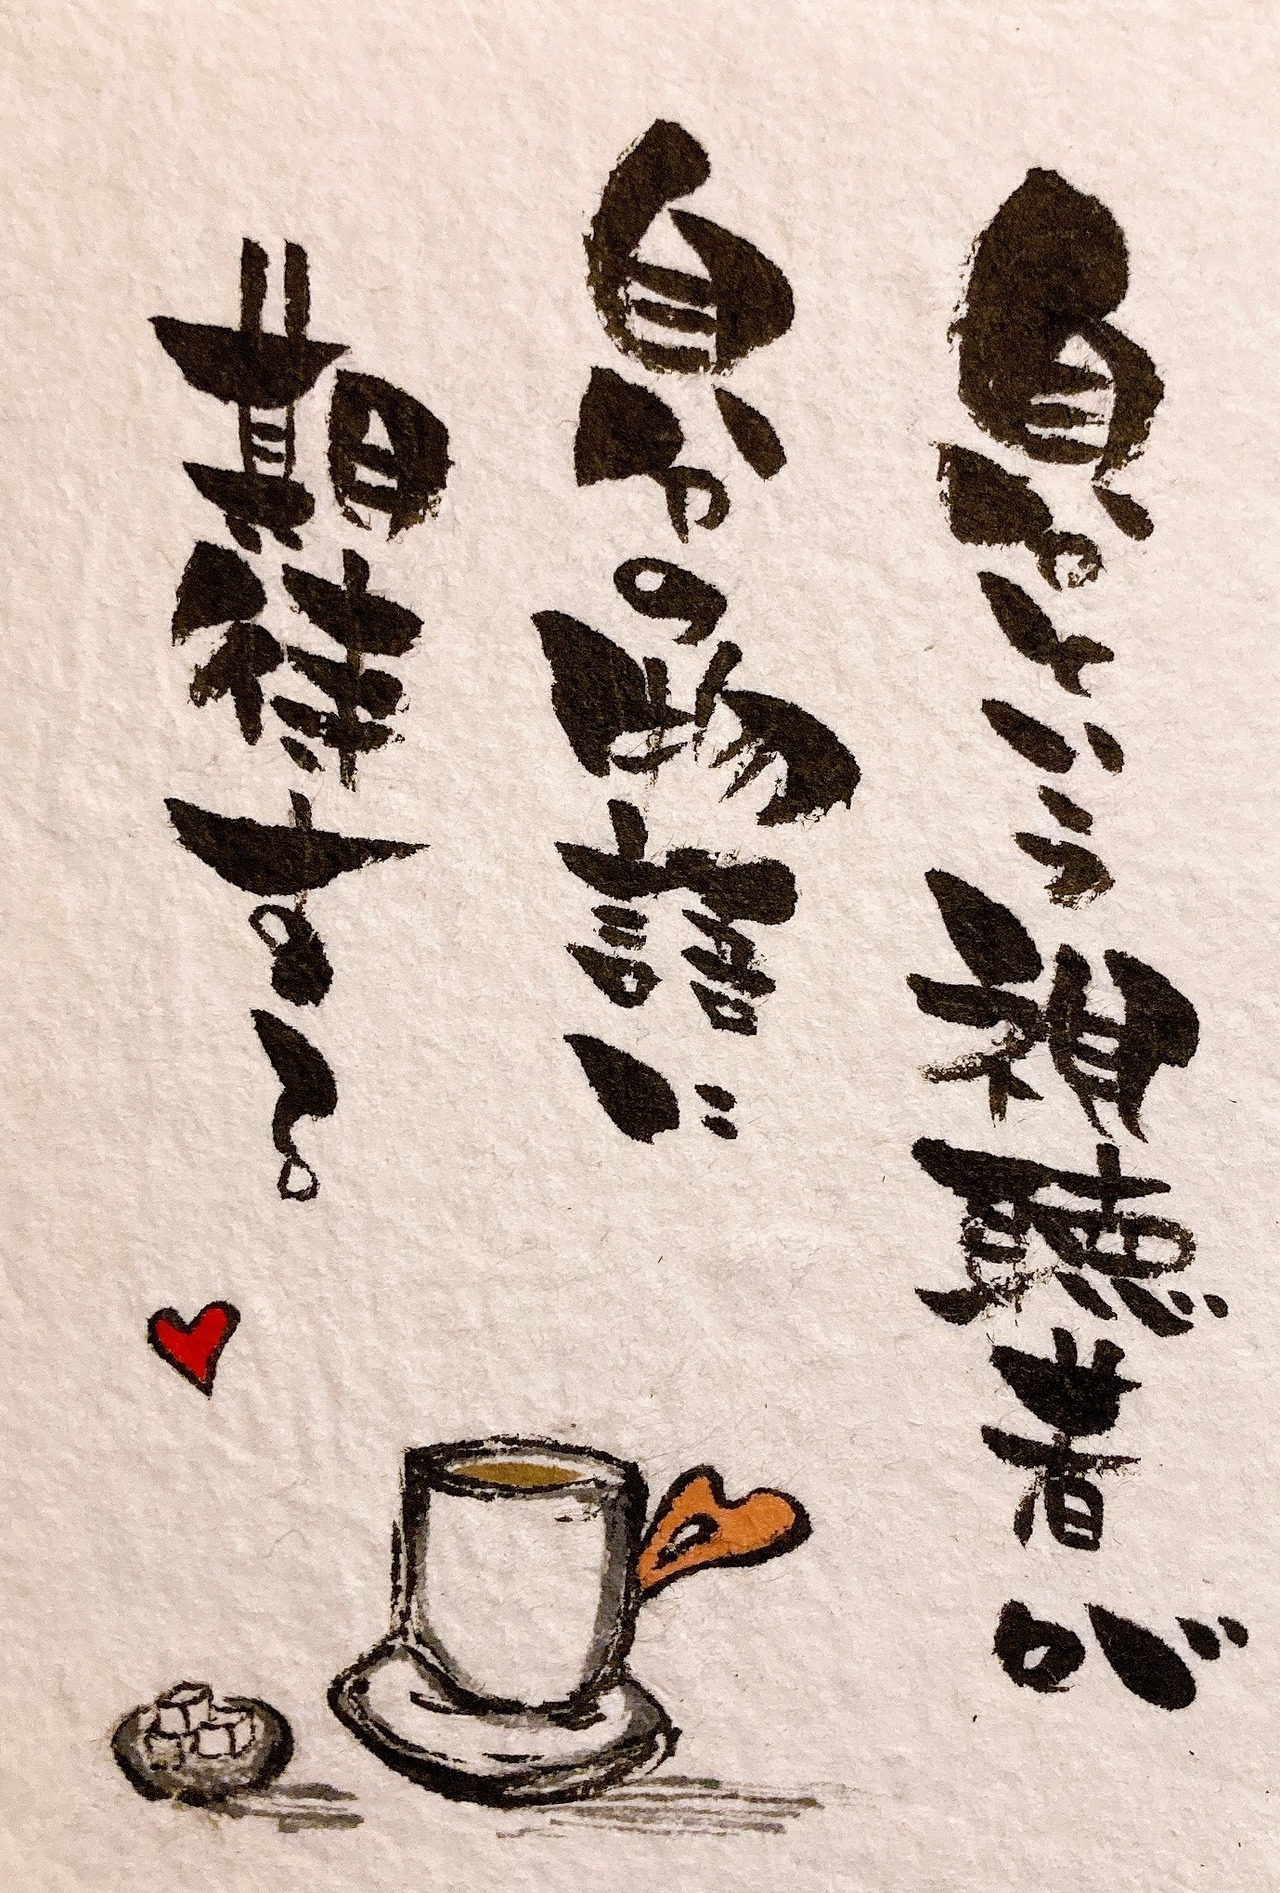 自分という視聴者が
自分の物語に
期待する